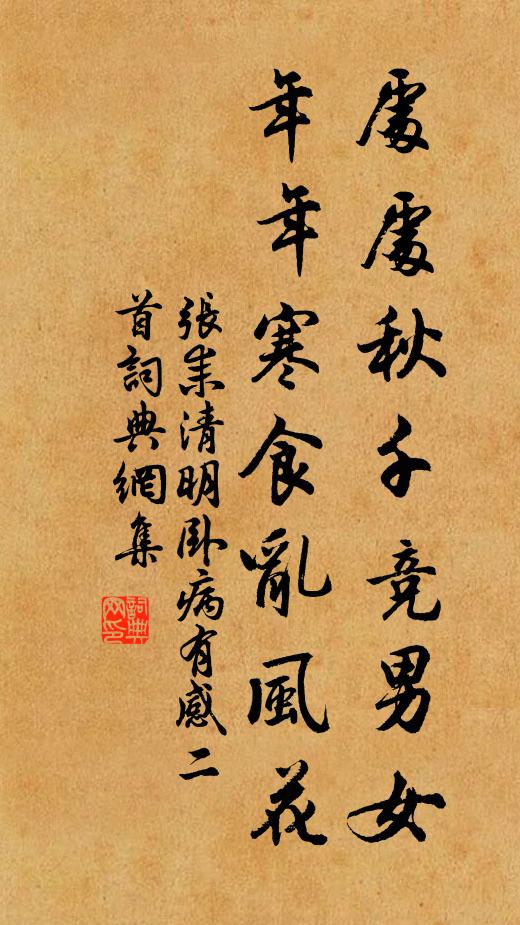 處處秋千競男女
年年寒食亂風花
張耒清明臥病有感二
首詞典網集
詞典
网印